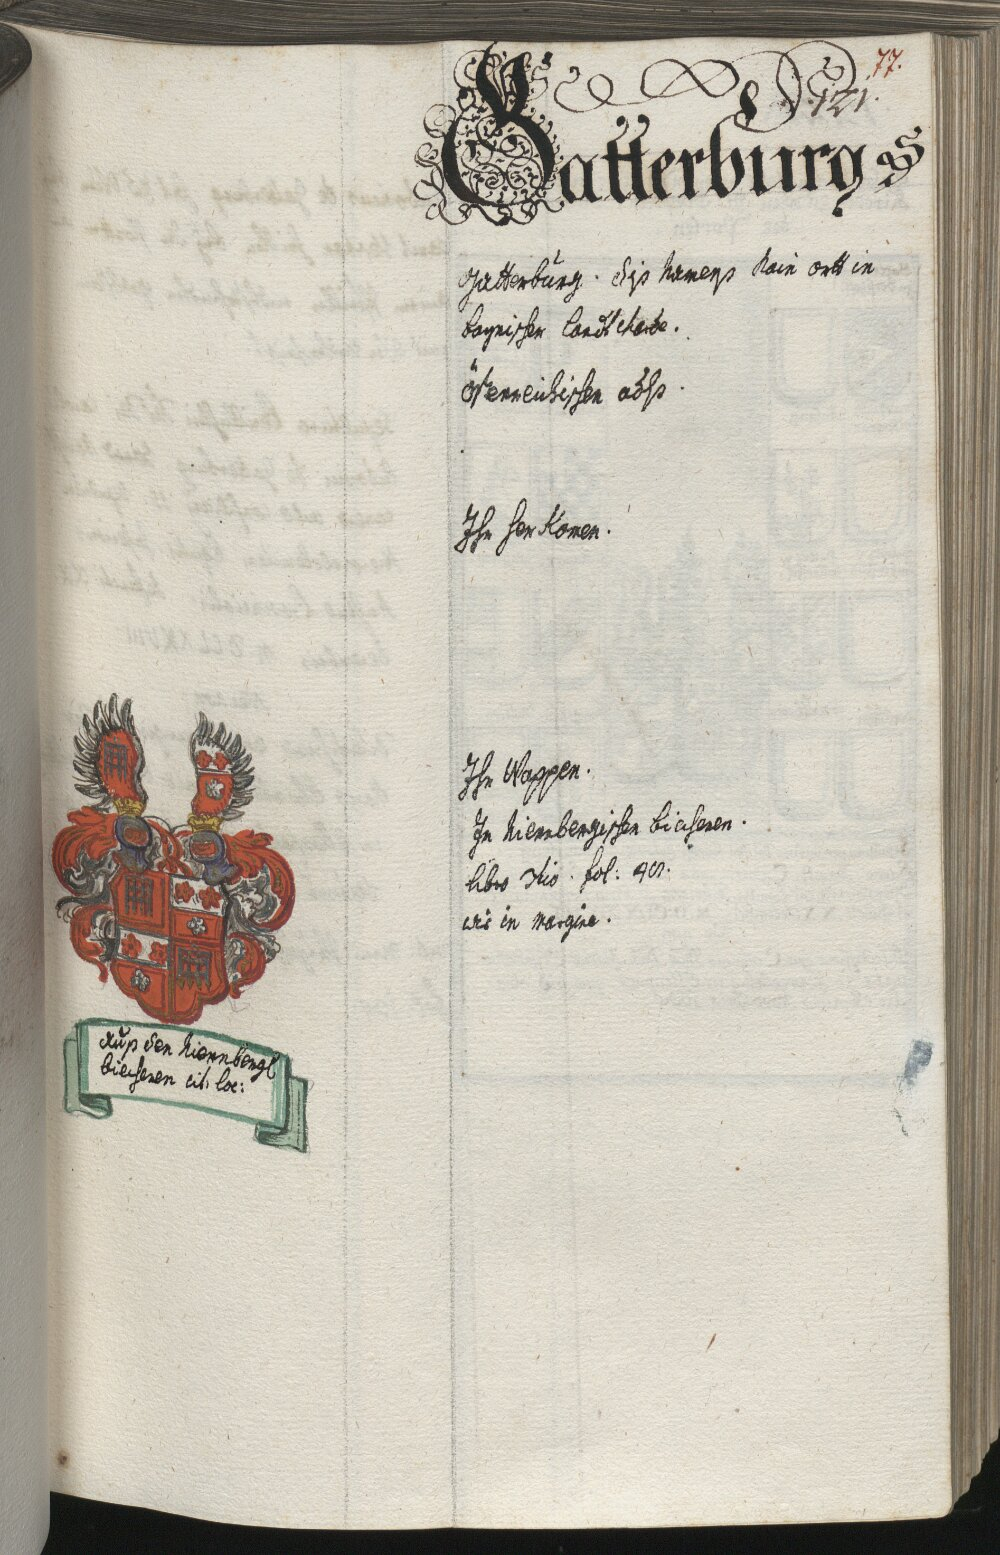 77.
121.
Gatterburg
Gatterburg. diss namenss kain ortt in
bayrischer landt
Österreichischer adlss.
Ihr her Komen.
Ihr Wappen.
In Niernbergischen biecheren.
libro fol:
wie in margine.
Auss den Niernbergl
biecheren cit: loc: